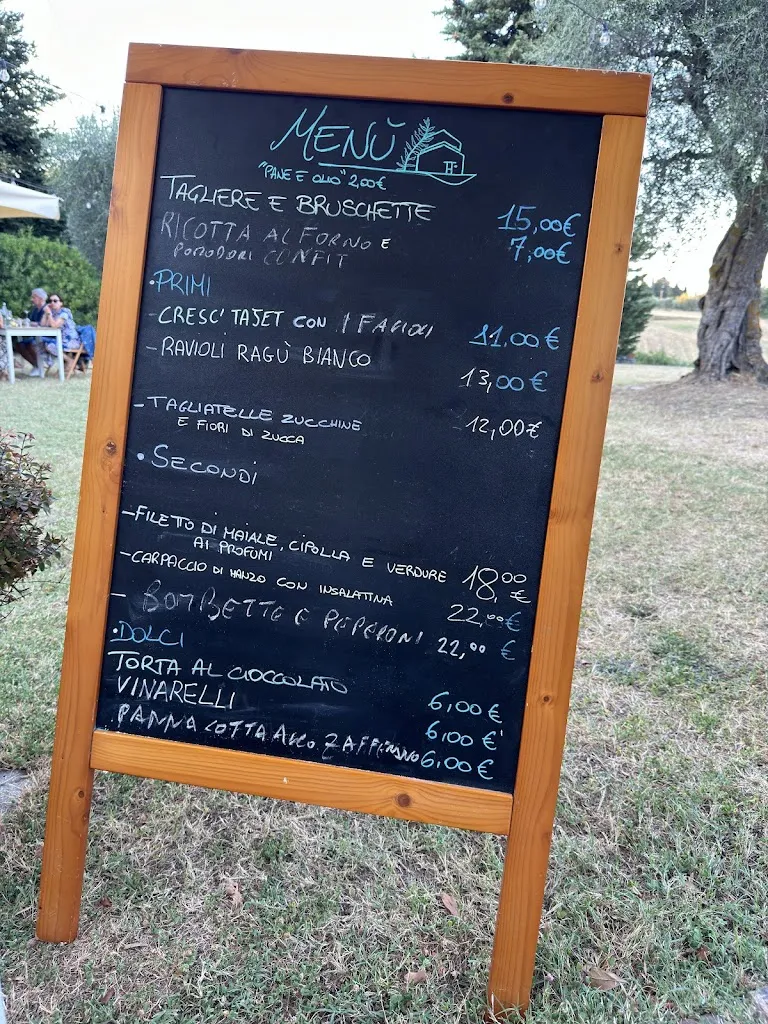 MENÙ
"PANE E OLIO" 2,00€
TAGLIERE E BRUSCHETTE 15,00€
RICOTTA AL FORNO E 7,00€
POMODORI CONFIT
•PRIMI
-CRESC'TAJET CON I FAGIOLI 11,00€
-RAVIOLI RAGÙ BIANCO 13,00€
-TAGLIATELLE ZUCCHINE 12,00€
E FIORI DI ZUCCA
•SECONDI
-FILETTO DI MAIALE, CIPOLLA E VERDURE 18,00 €
AI PROFUMI
-CARPACCIO DI MANZO CON INSALATINA 22,00€
- BOMBETTE E PEPERONI 22,00 €
•DOLCI
TORTA AL CIOCCOLATO 6,00€
VINARELLI 6,00€
PANNA COTTA ALLO ZAFFERANO 6,00€